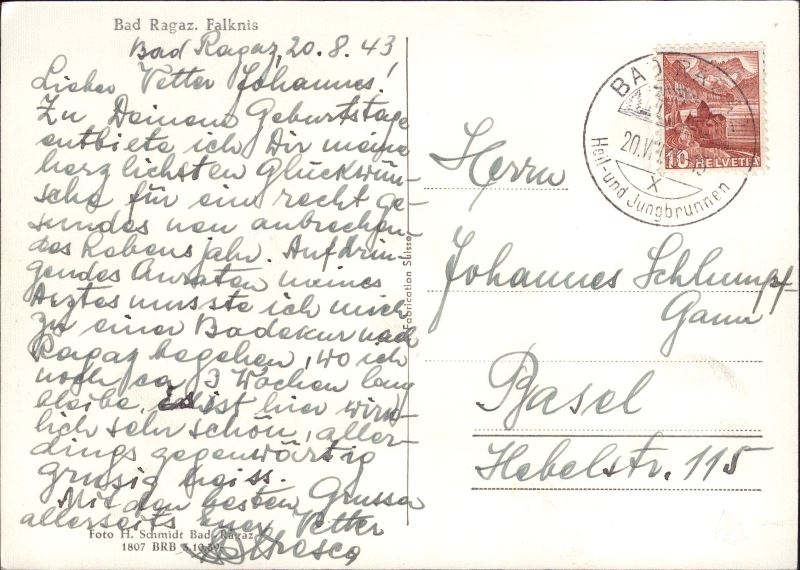 Bad Ragaz. Falknis
Bad Ragaz, 20.8.43
Lieber Vetter Johannes!
Zu Deinem Geburtstage
entbiete ich Dir meine
herzlichsten Glückwün-
sche für ein recht ge-
sundes neu anbrechen-
des Lebensjahr. Auf drin-
gendes Anraten meines
Arztes musste ich mich
zu einer Badekur nach
Ragaz begeben, wo ich
noch ca 3 Wochen lang
bleibe. Es ist hier wirk-
lich sehr schön, aller-
dings gegenwärtig
grusig heiss.
Mit den besten Grüssen
allerseits euer Vetter
Foto H. Schmidt Bad Ragaz
1807 BRB 3.10.39
Fabrication Suisse
BAD RAGAZ
20.VI
X
Heil- und Jungbrunnen
10 HELVETIA
Herrn
Johannes Schlumpf-
Gann
Basel
Hebelstr. 115